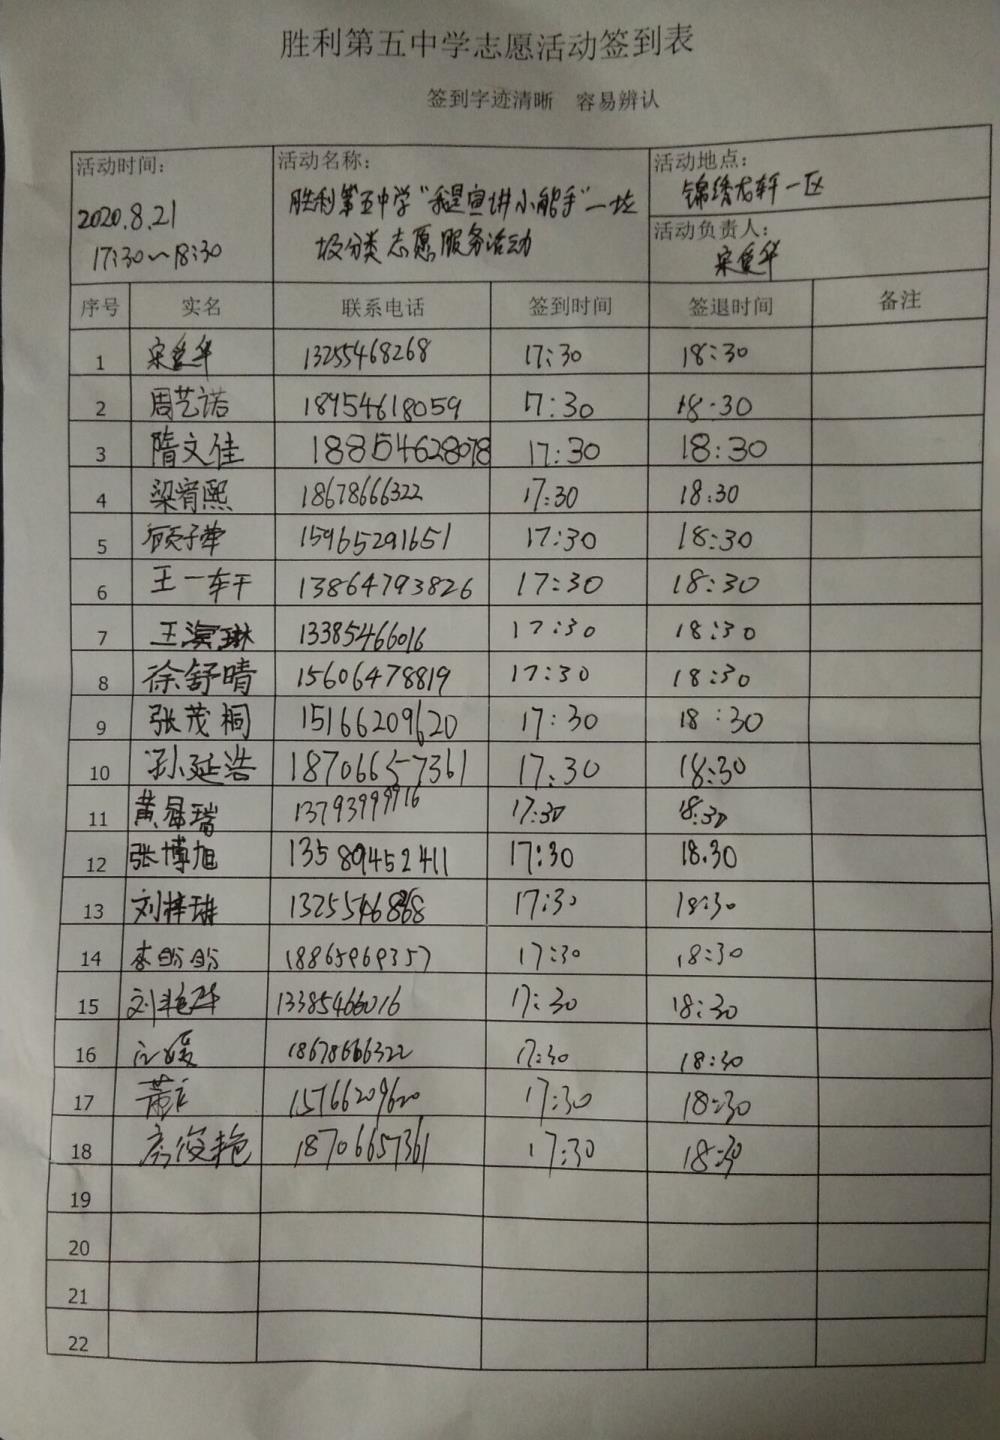 胜利第五中学志愿活动签到表
签到字迹清晰 容易辨认
活动时间: 活动名称: 活动地点:
2020.8.21 胜利第五中学"我是宣讲小能手"一垃 锦绣龙轩一区
17:30~18:30 圾分类志愿服务活动 活动负责人:
宋爱华
序号 实名 联系电话 签到时间 签退时间 备注
1 宋爱华 13255468268 17:30 18:30
2 周艺诺 18954618059 17:30 18:30
3 隋文佳 18854628078 17:30 18:30
4 梁宵熙 18678666322 17:30 18:30
5 顾子华 15965291651 17:30 18:30
6 王一 13864793826 17:30 18:30
7 王滨琳 13385466016 17:30 18:30
8 徐舒晴 15606478819 17:30 18:30
9 张茂桐 15166209620 17:30 18:30
10 孙延浩 18706657361 17:30 18:30
11 黄 瑞 13793999916 17:30 18:30
12 张博旭 13589452411 17:30 18.30
13 刘梓琟 17:30 18:30
14 李盼盼 18865969357 17:30 18:30
15 刘艳萍 13385466016 17:30 18:30
16 媛 18678666322 17:30 18:30
17 15166209620 17:30 18:30
18 房俊艳 18706657361 17:30 18:30
19
20
21
22